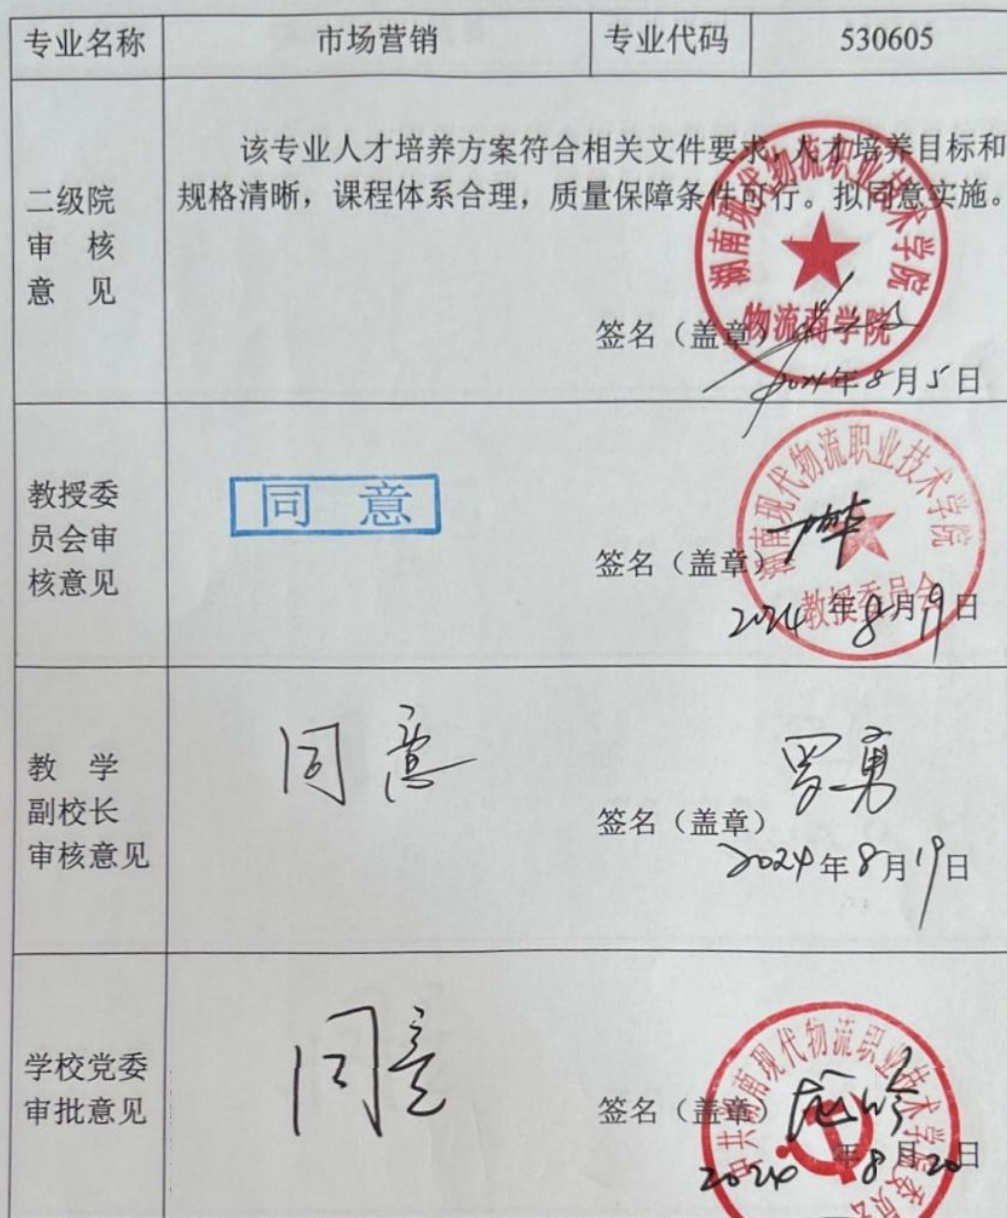 专业名称 市场营销 专业代码 530605
该专业人才培养方案符合相关文件要求，人才培养目标和
规格清晰，课程体系合理，质量保障条件可行。拟同意实施。
二级院
审 核
意 见
湖南现代物流职业技术学院
物流商学院
签名（盖章）
2024年8月5日
教授委
员会审
核意见
同 意
湖南现代物流职业技术学院
教授委员会
签名（盖章）
2024年8月19日
教 学
副校长
审核意见
同意
签名（盖章）罗勇
2024年8月19日
学校党委
审批意见
同意
中共湖南现代物流职业技术学院委员会
签名（盖章）
2024年8月20日